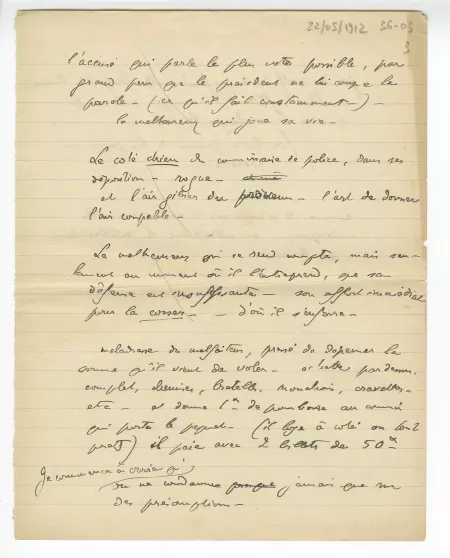 22/05/1912 36-03
3
l'accusé qui parle le plus vite possible, par
grand peur que le président ne lui coupe la
parole – (ce qu'il fait constamment –) –
le malheureux qui joue sa vie –
Le coté chien du commissaire de police, dans sa
déposition – rogue –
et l'air piteux du – l'art de donner
l'air coupable –
Le malheureux qui se rend compte, mais seu-
lement au moment où il l'entreprend, que sa
défense est insuffisante – son effort
pour la corser – – d'où il s'enferre –
maladresse du malfaiteur, pressé de dépenser la
somme qu'il vient de voler – achète pardessus,
complet, chemises, bretelles, mouchoirs, cravattes –
etc – et donne 1 de pourboire au commis
qui porte le paquet – (il loge à coté ou tout
près) il paie avec 2 billets de 50
Je commence à croire qu'
on ne condamne presque jamais que sur
des présomptions –